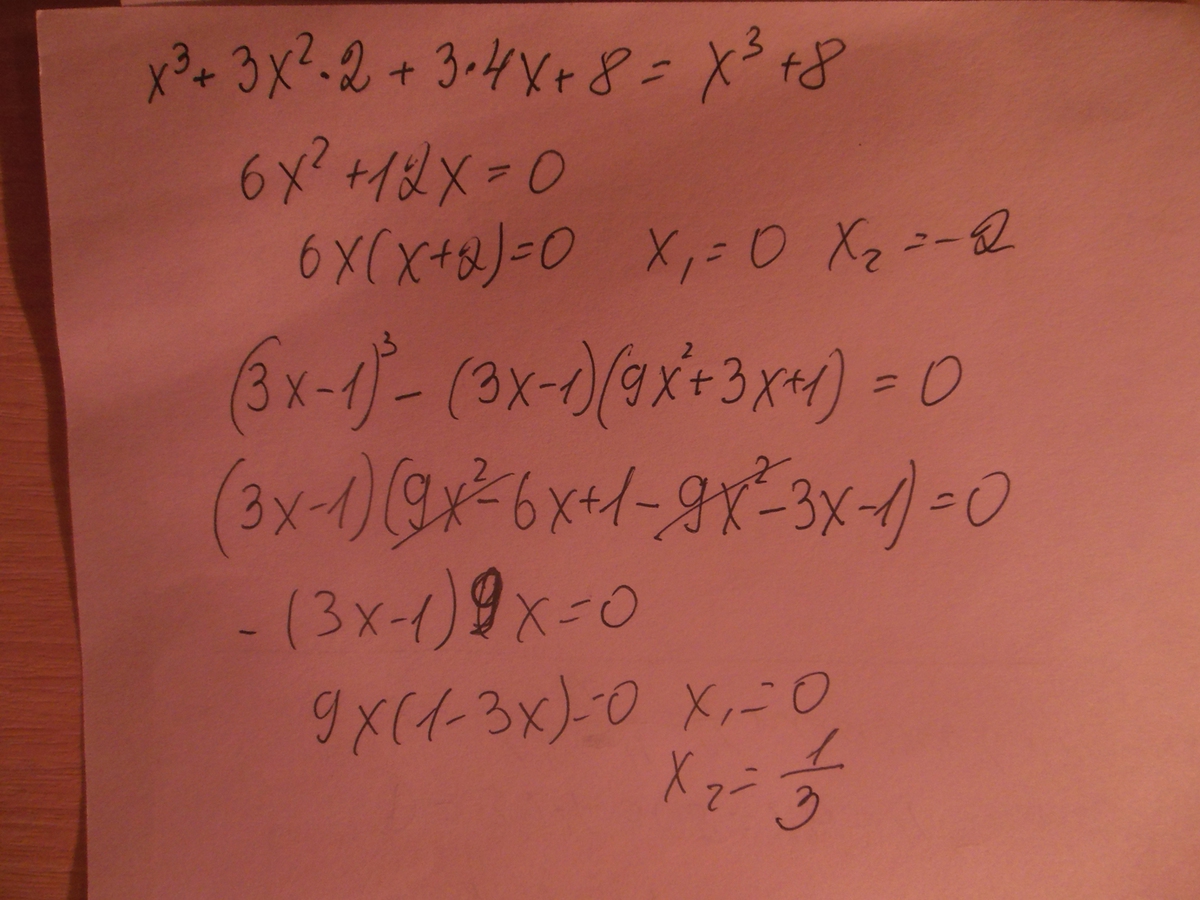 x³ + 3x²·2 + 3·4x + 8 = x³ + 8
6x² + 12x = 0
6x(x+2) = 0 x₁ = 0 x₂ = -2
(3x-1)³ - (3x-1)(9x²+3x+1) = 0
(3x-1)(9x²-6x+1-9x²-3x-1) = 0
-(3x-1)9x = 0
9x(1-3x) = 0 x₁ = 0
x₂ = 1/3